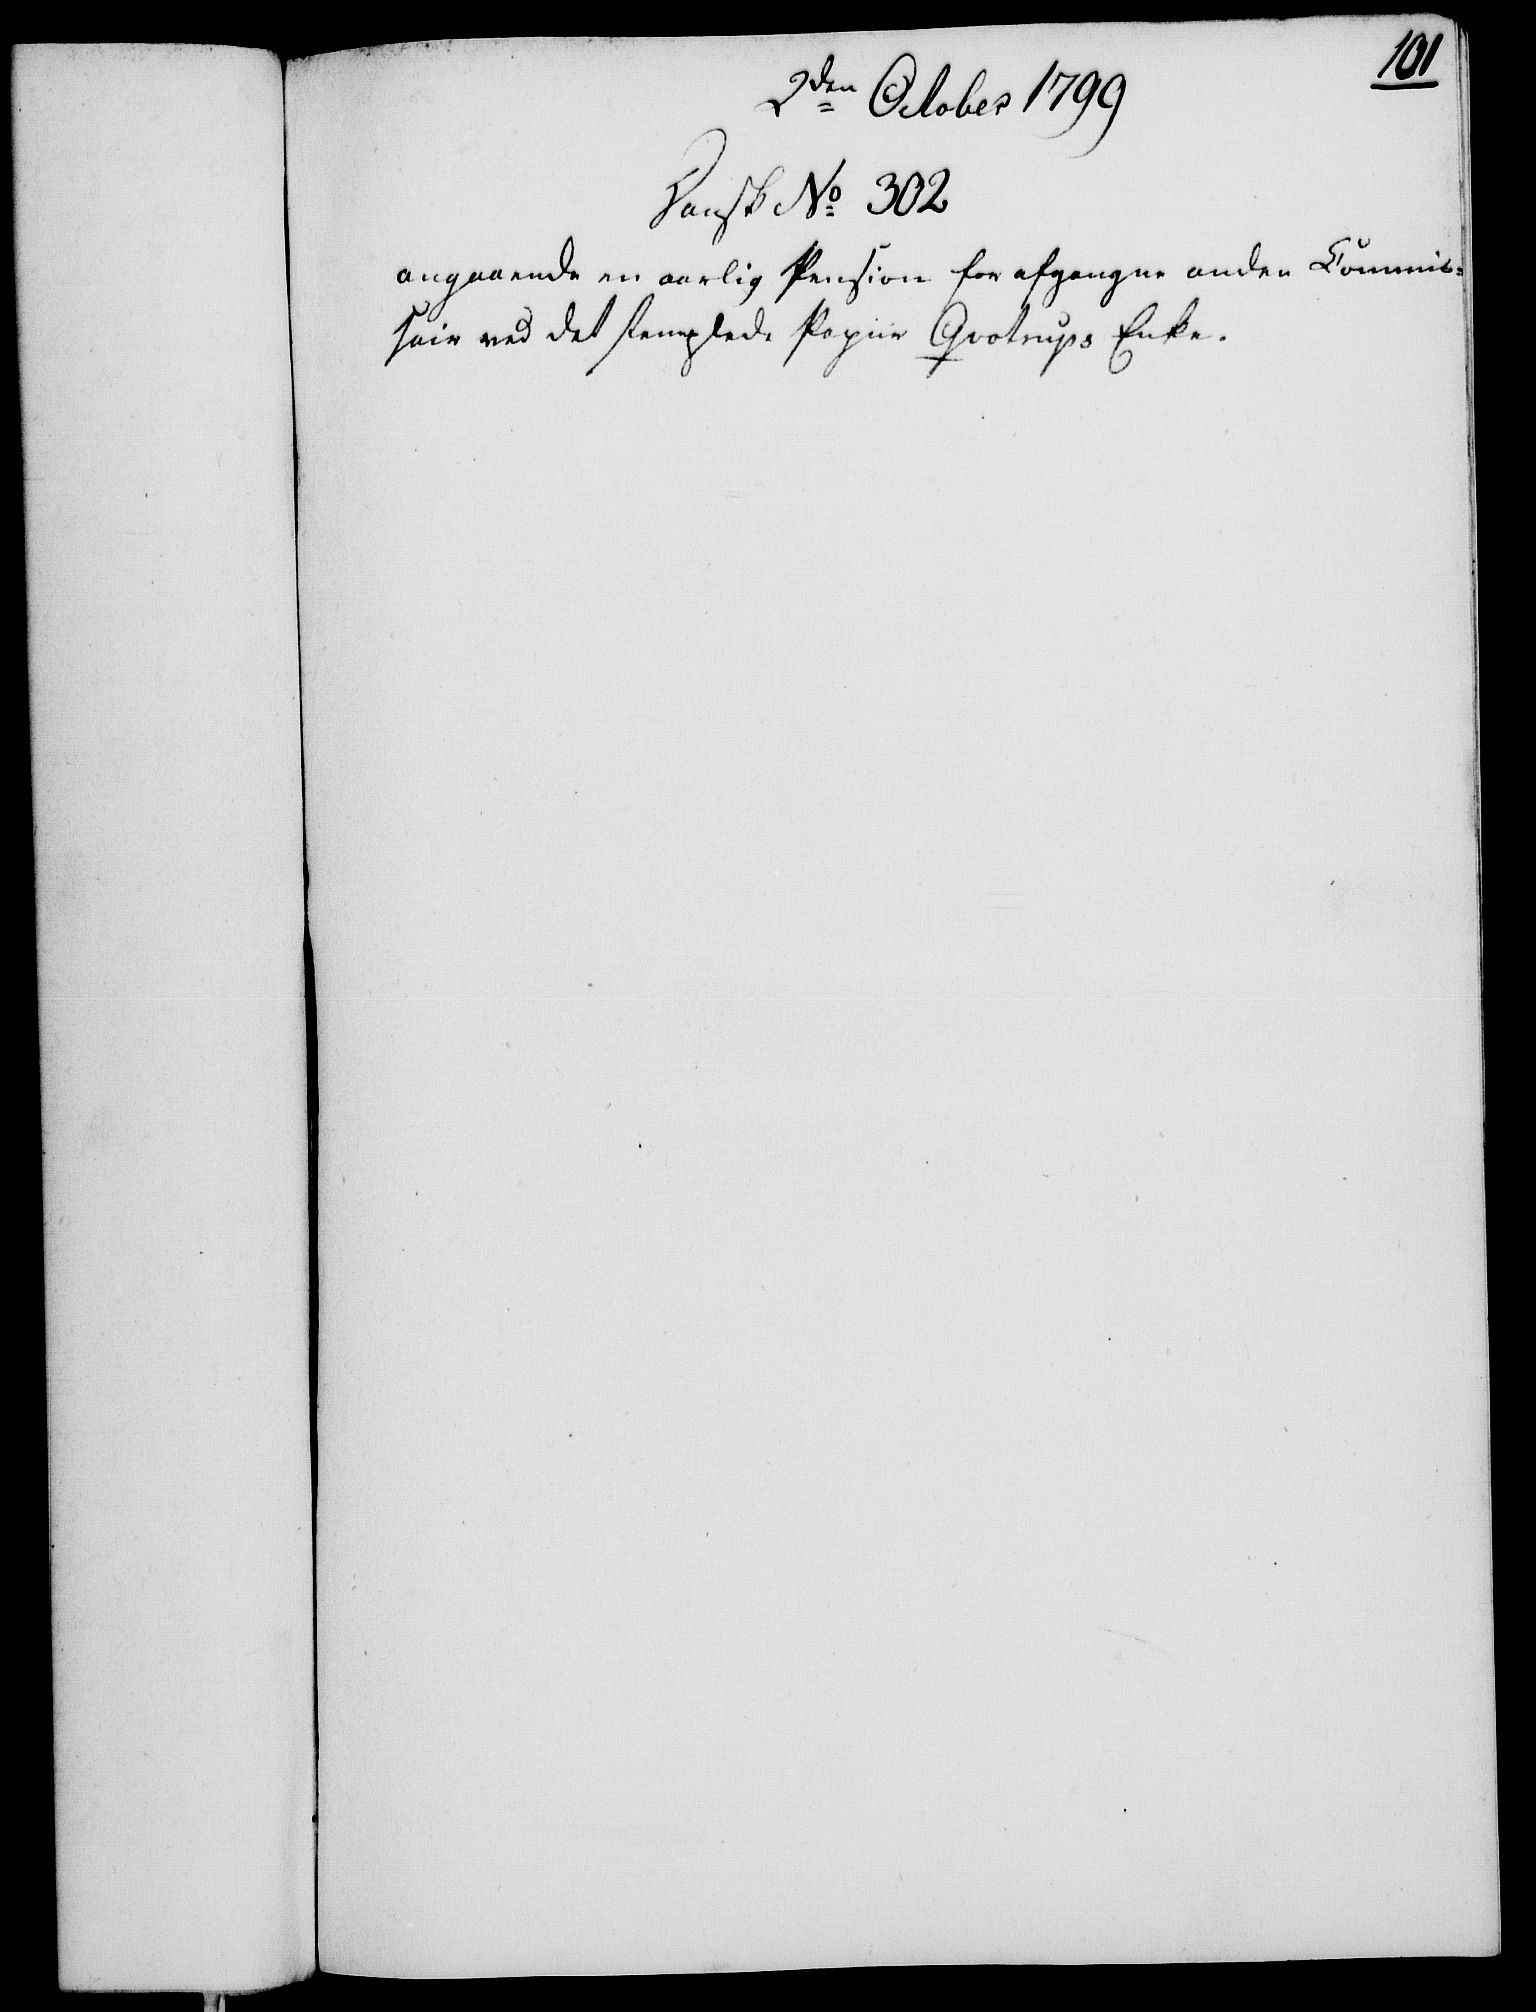 101
2den October 1799
Dansk No 302
angaaende en aarlig Pension for afgangne anden Commis=
sair ved det stemplede Papiir Qvotrups Enke.